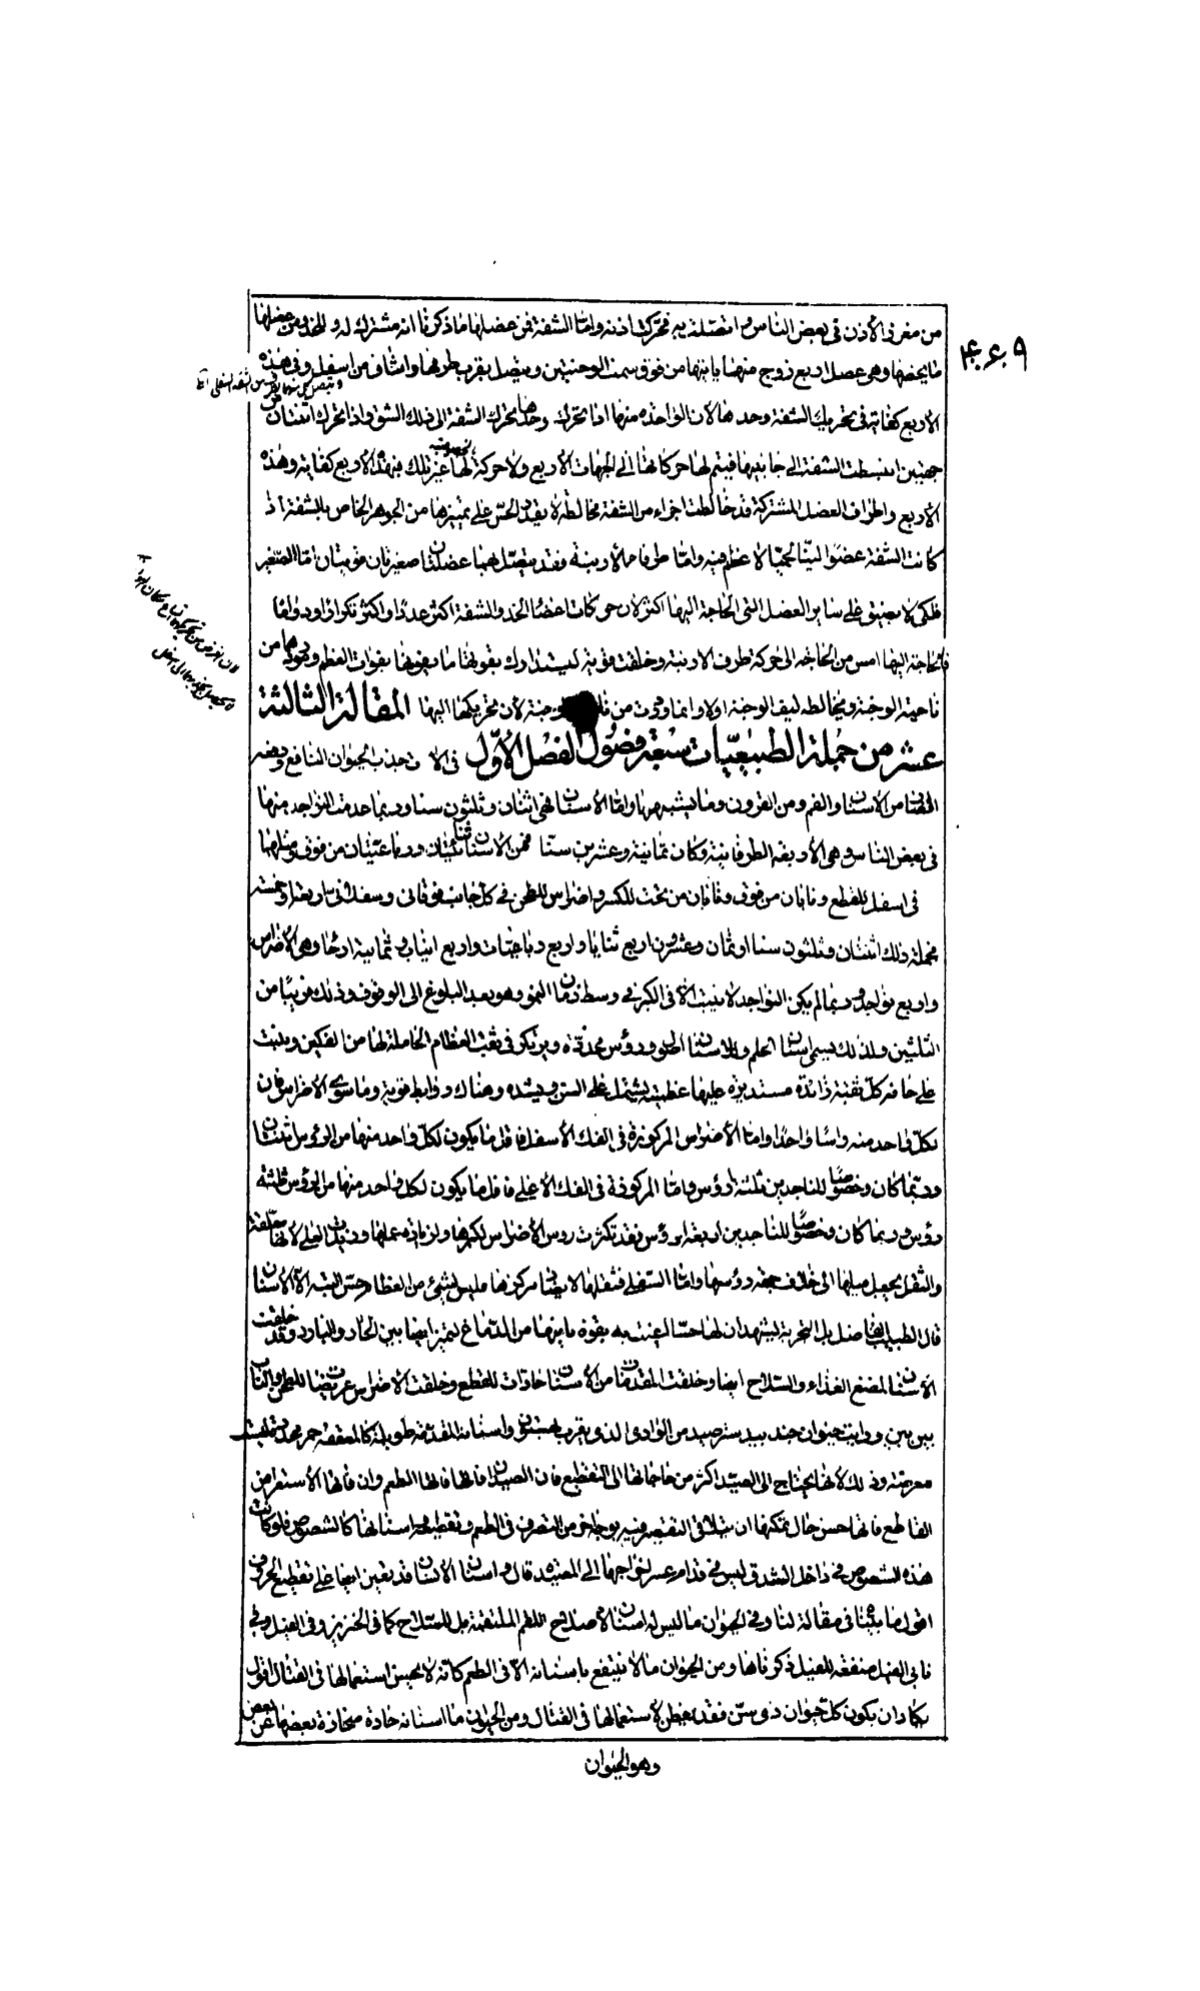 من مغرز الأذن فى بعض الناس واتصلت به فحركت اذنه واما الشفة فمن عضلها ما ذكرنا انه مشترك له وللخد ومن عضلها
ما يخصها وهى عضل اربع زوج منها يأتيها من فوق سمت الوجنتين ويتصل بقرب طرفها واثنان من اسفل وفى هذه
الأربع كفاية فى تحريك الشفة وحدها لان الواحدة منها اذا تحركت وحدها تحرك الشفة الى ذلك الشق واذا تحرك اثنتان من
جهتين انبسطت الشفة الى جانبيها فيتم لها حركاتها الى الجهات الأربع ولا حركة لها غير تلك فهذه الأربع كفاية وهذه
الأربع واطراف العضل المشتركة قد خالطت اجزاء من الشفة مخالطة لا يقدر الحس على تمييزها من الجوهر الخاص بالشفة اذ
كانت الشفة عضوا لينا لحميا لا عظم فيه واما طرفا الأرنبة فقد يتصل بهما عضلتان صغيرتان قويتان اما الصغير
فلكى لا يضيق على سائر العضل التى الحاجة اليها اكثر لان حركات اعضاء الخد والشفة اكثر عددا واكثر تكرارا ودواما
والحاجة اليها امس من الحاجة الى حركة طرف الارنبة وخلقت قوية ليتدارك بقوتها ما يفوتها بفوات العظم وموردهما من
ناحية الوجنة ويخالطه ليف الوجنة اولا وانما وردت من الوجنة لأن تحريكها اليها المقالة الثالثة
عشر من جملة الطبيعيات سبعة فصول الفصل الأول فى الا وجذب الحيوان النافع ودفعه
من الأسنان والفم ومن القرون وما يشبهها واما الأسنان فهى اثنتان وثلثون سنا وربما عدمت النواجد منها
فى بعض الناس وهى الأربعة الطرفانية وكان ثمانية وعشرين سنا فمن الأسنان ثنيتان ورباعيتان من فوق ومثلها
فى اسفل للقطع ونابان من فوق ونابان من تحت للكسر واضراس للطحن فى كل جانب فوقانى وسفلانى اربعة او خمسة
فجملة ذلك اثنتان وثلثون سنا او ثمان وعشرون اربع ثنايا واربع رباعيات واربع انياب وثمانية ارحا وهى الأضراس
واربع نواجد وربما لم يكن النواجد لا تنبت الا فى الكبر فى وسط زمان النمو وهو بعد البلوغ الى الوقوف وذلك قريبا من
الثلثين ولذلك يسمى اسنان الحلم وللاسنان اصول ورؤس محددة ويرتكز فى ثقب العظام الحاملة لها من الفكين وينبت
على حافة كل ثقبة زائدة مستديرة عليها عظمية يشتمل على السن ويشده وهناك روابط قوية وما سوى الأضراس فان
لكل واحد منه راسا واحدا واما الأضراس المركوزة فى الفك الأسفل فاقل ما يكون لكل واحد منها من الرؤس راسان
وربما كان وخصوصا للناجدين ثلثة رؤس واما المركوزة فى الفك الأعلى فاقل ما يكون لكل واحد منها من الرؤس ثلثة
رؤس وربما كان وخصوصا للناجدين اربعة رؤس فقد تكثرت رؤس الأضراس لكبرها ولزيادة عملها وزيد للعليا لانها معلقة
والثقل يجعل ميلها الى خلاف جهة رؤسها واما السفلى فثقلها لا يضاد ركوزها وليس لشئ من العظام حس البتة الا الأسنان
قال الطبيب الفاضل بل التجربة ليشهد ان لها حسا اعينت به بقوة تاتيها من الدماغ لتميز ايضا بين الحار والبارد وقد خلقت
الأسنان لمضغ الغذاء والسلاح ايضا وخلقت المقدمات من الأسنان حادات للقطع وخلقت الأضراس عريضات للطحن والناب
بين بين ورأيت حيوان جند بيدستر صيد من الوادى الذى بقرب واسنانه المقدمة طويلة كالمعقفة حمر محددة ليست
معرضة وذلك لانها يحتاج الى الصيد اكثر من حاجاتها الى التقطيع فان الصيد ان فاتها فاتها الطعم وان فاتها الاستعراض
القاطع فاتها حسن حال يمكنها ان تتلافى التقصير فيه بوجه اخر من التصرف فى الطعم وتقطيعه واسنانها كالشصوص فلو كانت
هذه الشصوص فى داخل الشدق ليس فى قدام عسر اخراجها الى المصيد قال واسنان الانسان قد تعين ايضا على تقطيع الحروف
اقول ما بيناه فى مقالة لنا وفى الحيوان ما ليس له اسنان لاصلاح الطعم الملتقمة بل للسلاح كما فى الخنزير وفى الفيل وفى
نابى الفيل منفعة للفيل ذكرناها ومن الحيوان ما لا ينتفع باسنانه الا فى الطعم كانه لا يحسن استعمالها فى القتال اقول
يكاد ان يكون كل حيوان ذى سن فقد يفطن لاستعمالها فى القتال ومن الحيوان ما اسنانه حادة منحازة بعضها عن بعض
وهو الحيوان